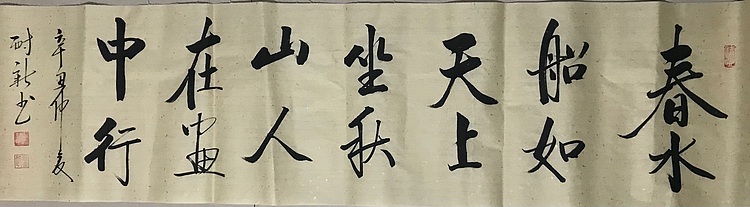 春水
船如
天上
坐秋
山人
在畫
中行
辛丑仲夏
新书